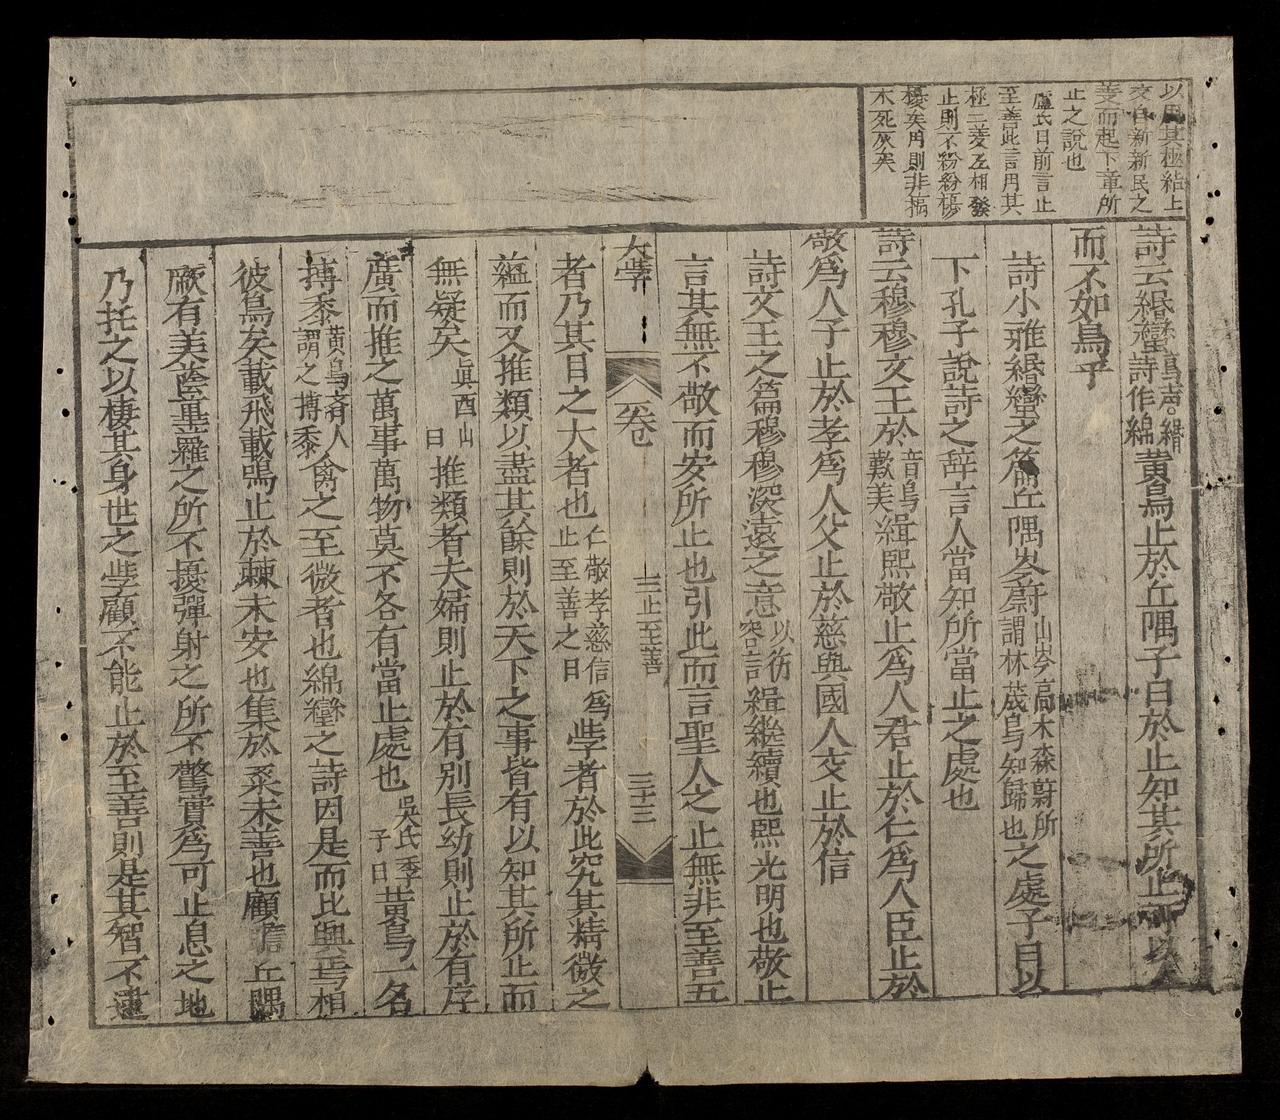 以用其極結上
文自新新民之
義而起下章所
止之說也
盧氏曰前言止
至善此言用其
極二義互相發
止則不紛紛擾
擾矣用則非槁
木死灰矣
詩云緡蠻鳥声○緡詩作綿黃鳥止於丘隅子曰於止知其所止可以人
而不如鳥乎
詩小雅緡蠻之篇丘隅岑蔚山岑高木森蔚所謂林茂鳥知歸也之處子曰以
下孔子說詩之辞言人當知所當止之處也
詩云穆穆文王於音烏歎美緝熙敬止為人君止於仁為人臣止於
敬為人子止於孝為人父止於慈與國人交止於信
詩文王之篇穆穆深遠之意以彷容言緝継續也熙光明也敬止
言其無不敬而安所止也引此而言聖人之止無非至善五
大斈 卷 三止至善 三十三
者乃其目之大者也仁敬孝慈信為止至善之目斈者於此究其精微之
蘊而又推類以盡其餘則於天下之事皆有以知其所止而
無疑矣真西山曰推類者夫婦則止於有別長幼則止於有序
廣而推之萬事萬物莫不各有當止處也吳氏季子曰黃鳥一名
搏黍黃鳥斉人謂之搏黍禽之至微者也綿蠻之詩因是而比興焉相
彼鳥矣載飛載鳴止於棘未安也集於桑未善也顧瞻丘隅
厥有美蔭畢羅之所不擾彈射之所不驚實為可止息之地
乃托之以棲其身世之斈顧不能止於至善則是其智不逮